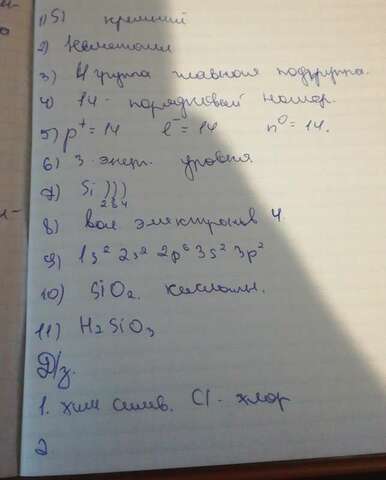 1) Si кремний
2) Неметалл
3) 4 группа главная подгруппа.
4) 14 - порядковый номер.
5) p⁺ = 14 e⁻ = 14 n⁰ = 14.
6) 3 энерг. уровня.
7) Si )))
2 8 4
8) вал. электронов 4
9) 1s² 2s² 2p⁶ 3s² 3p²
10) SiO₂
11) H₂SiO₃
Д/з.
1. хим симв. Cl - хлор
2